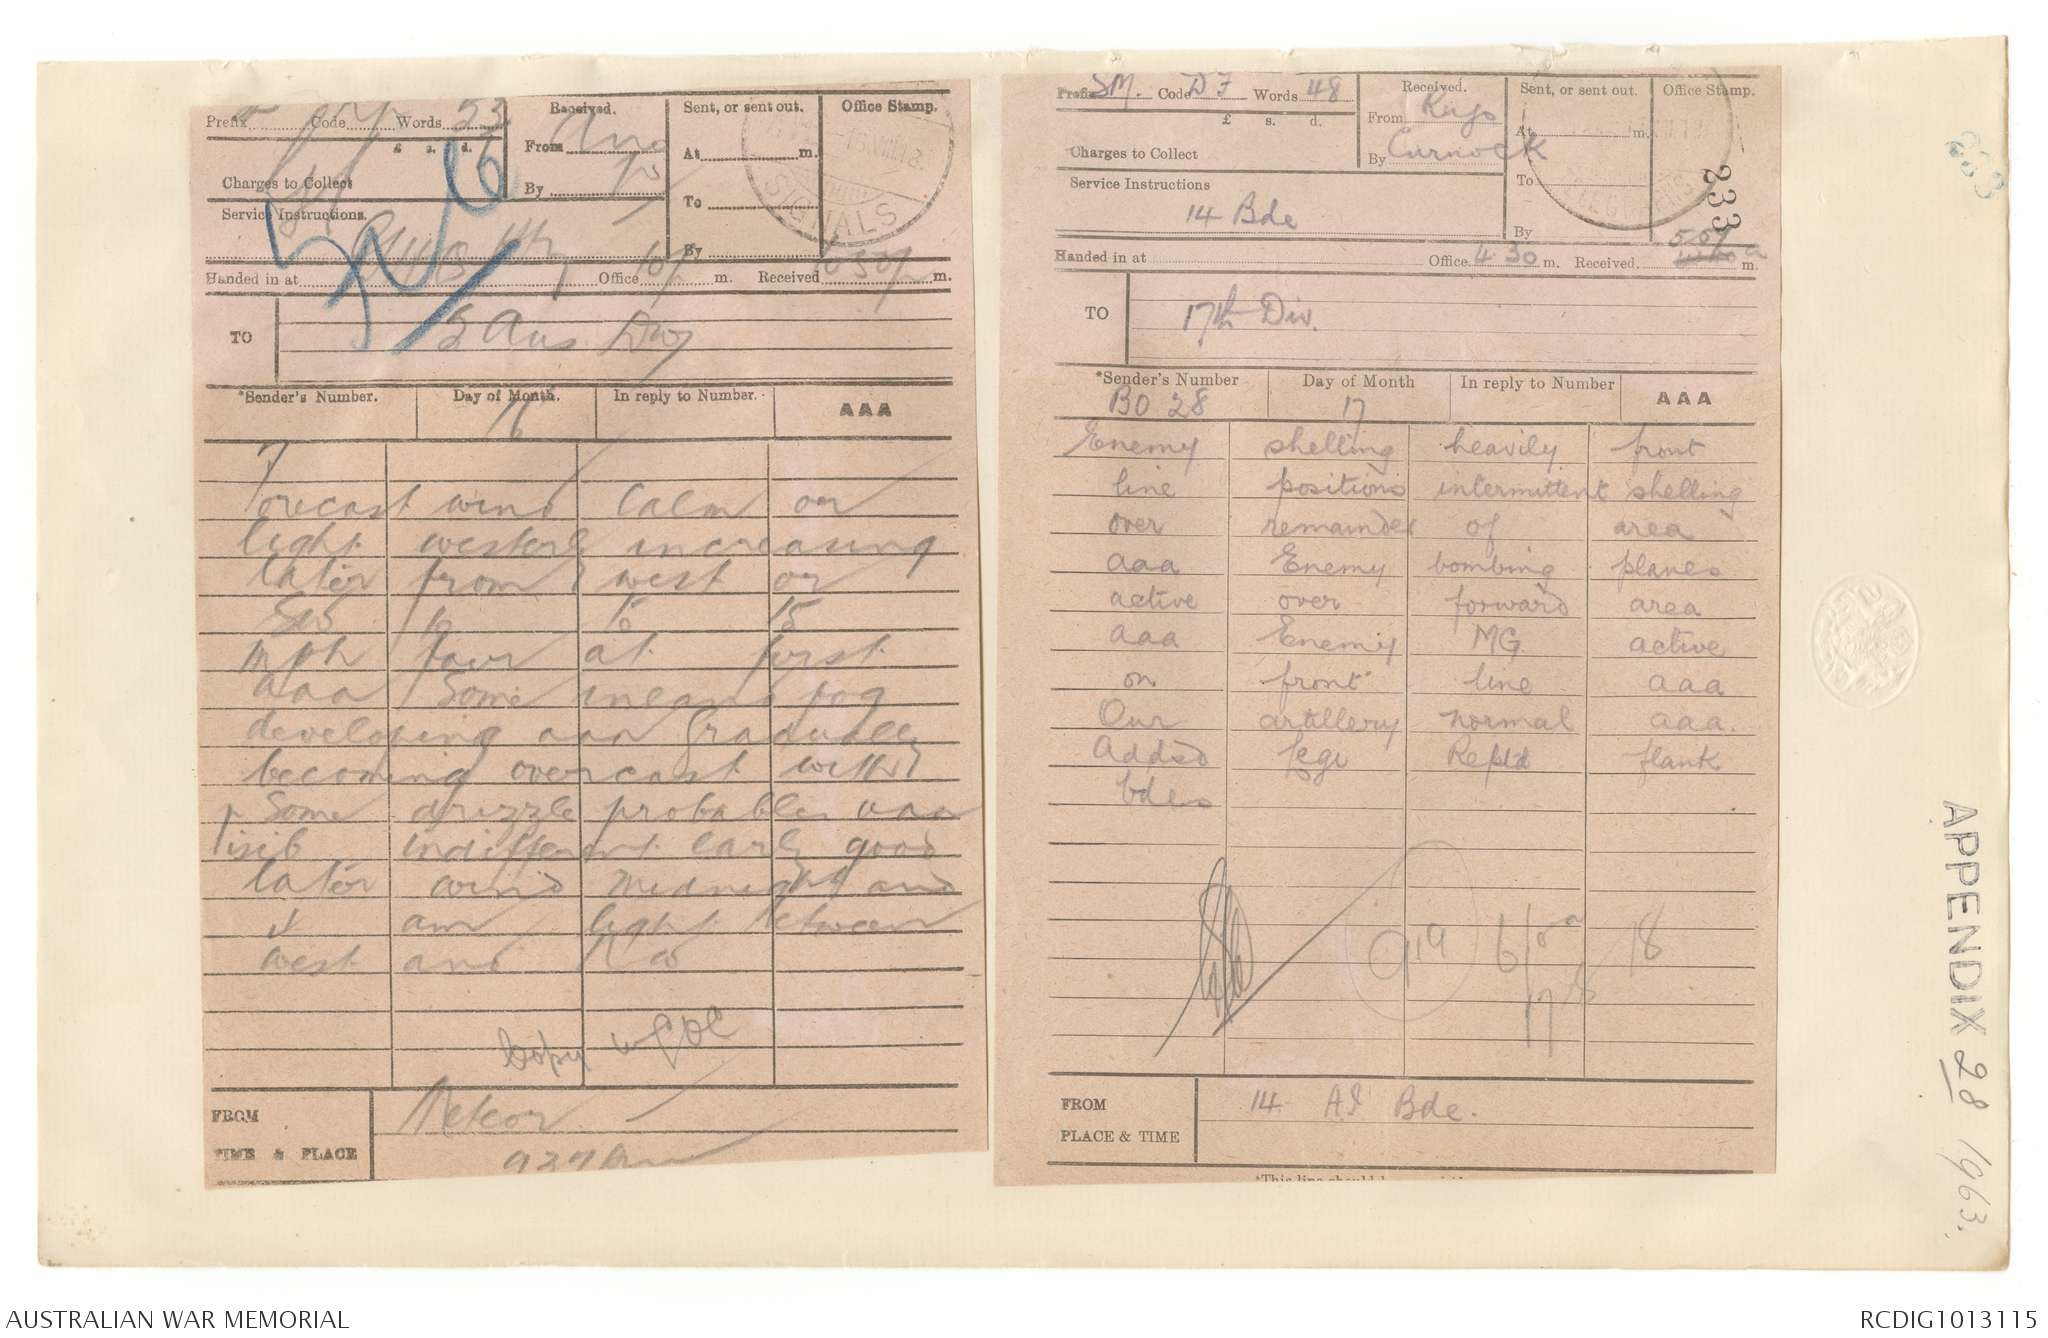 Prefix Code Words 53
£ s. d.
Charges to Collect
Service Instructions.
Received.
From
By
Sent, or sent out.
At m.
To
By
Office Stamp.
SIGNALS
Handed in at Office 10 p m. Received 1030 p m.
TO 5 Aus Div
*Sender's Number. Day of Month. In reply to Number. AAA
16
Forecast wind calm or
light westerly increasing
later from west or
SW to 15
mph fair at first
aaa Some fog
developing aaa Gradually
becoming overcast with
some drizzle probable aaa
Visib indifferent early good
later wind midnight and
am light between
west and
Copy
FROM Meteor
TIME & PLACE 927 pm
Prefix SM. Code DF Words 48
£ s. d.
Charges to Collect
Service Instructions
14 Bde
Received.
From
By Curnock
Sent, or sent out.
At m.
To
By
Office Stamp.
233
Handed in at Office 4 30 m. Received. m.
TO 17th Div.
*Sender's Number Day of Month In reply to Number AAA
BO 28 17
Enemy shelling heavily front
line positions intermittent shelling
over remainder of area
aaa Enemy bombing planes
active over forward area
aaa Enemy MG active
on front line aaa
Our artillery normal aaa.
Addsd Reptd flank
bdes
18
17
FROM 14 AI Bde.
PLACE & TIME
233
APPENDIX 28 1963.
AUSTRALIAN WAR MEMORIAL
RCDIG1013115